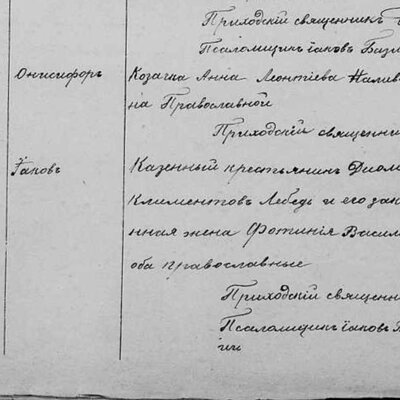 Приходскій священникъ
Псаломщикъ Іаковъ
Онисифоръ Козачка Анна Леонтіева Налив
на Православной
Приходскій священни
Іаковъ Казенный крестьянинъ Диом
Климентовъ Лебедь и его зак
нная жена Фотинія Васил
оба православные
Приходскій священн
Псаломщикъ Іаковъ